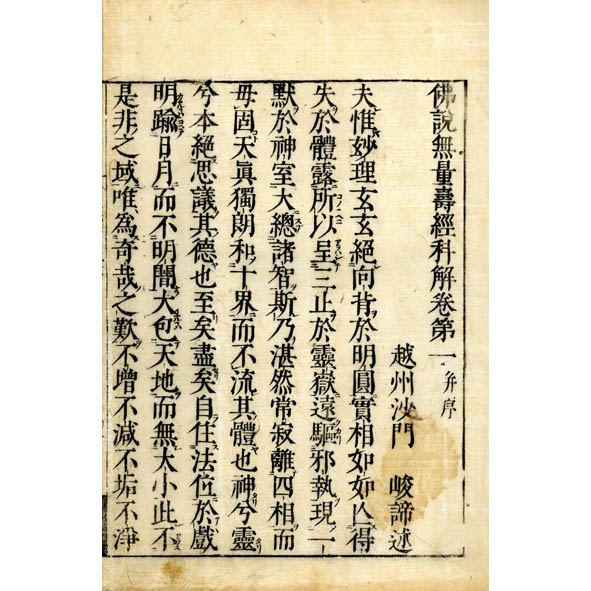 佛說無量壽經科解卷第一 并序
越州沙門 峻諦述
夫惟妙理玄玄絕向背於明圓實相如如亾得
失於體露所以呈三止於靈嶽遠驅邪執現一
默於神室大總諸智斯乃湛然常寂離四相而
毋固天眞獨朗和十界而不流其體也神兮靈
兮本絕思議其德也至矣盡矣自住法位於戲
明踰日月而不明闇大包天地而無大小此不
是非之域唯為奇哉之歎不增不減不垢不淨